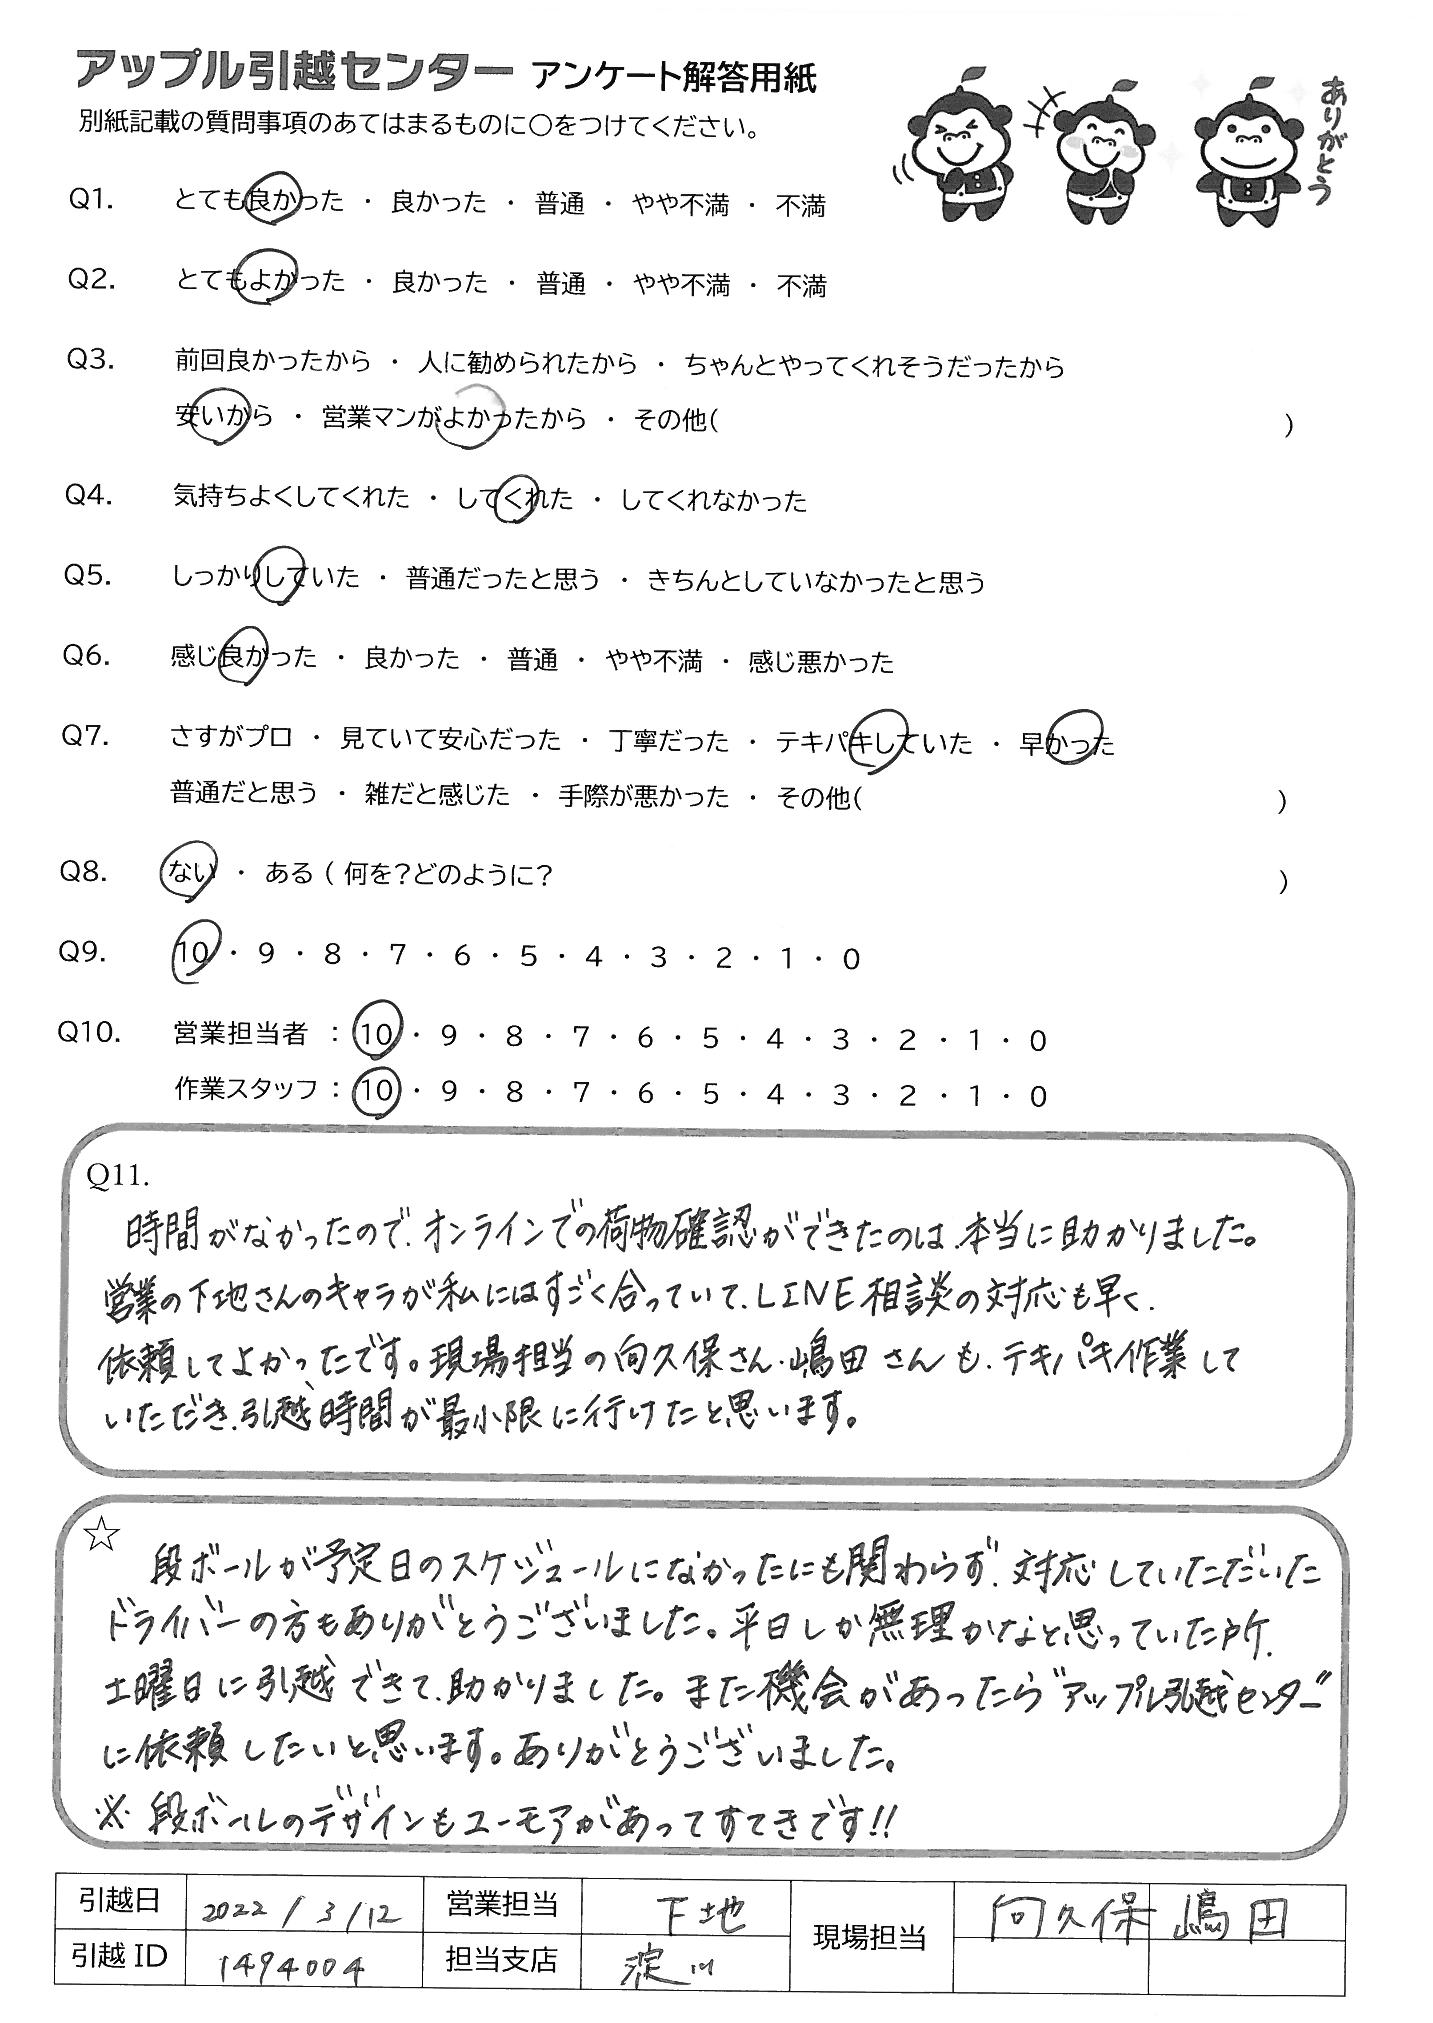 アップル引越センター アンケート解答用紙
別紙記載の質問事項のあてはまるものに○をつけてください。
ありがとう
Q1. とても良かった ・ 良かった ・ 普通 ・ やや不満 ・ 不満
Q2. とてもよかった ・ 良かった ・ 普通 ・ やや不満 ・ 不満
Q3. 前回良かったから ・ 人に勧められたから ・ ちゃんとやってくれそうだったから
安いから ・ 営業マンがよかったから ・ その他( )
Q4. 気持ちよくしてくれた ・ してくれた ・ してくれなかった
Q5. しっかりしていた ・ 普通だったと思う ・ きちんとしていなかったと思う
Q6. 感じ良かった ・ 良かった ・ 普通 ・ やや不満 ・ 感じ悪かった
Q7. さすがプロ ・ 見ていて安心だった ・ 丁寧だった ・ テキパキしていた ・ 早かった
普通だと思う ・ 雑だと感じた ・ 手際が悪かった ・ その他( )
Q8. ない ・ ある ( 何を?どのように? )
Q9. 10 ・ 9 ・ 8 ・ 7 ・ 6 ・ 5 ・ 4 ・ 3 ・ 2 ・ 1 ・ 0
Q10. 営業担当者 : 10 ・ 9 ・ 8 ・ 7 ・ 6 ・ 5 ・ 4 ・ 3 ・ 2 ・ 1 ・ 0
作業スタッフ : 10 ・ 9 ・ 8 ・ 7 ・ 6 ・ 5 ・ 4 ・ 3 ・ 2 ・ 1 ・ 0
Q11.
時間がなかったので、オンラインでの荷物確認ができたのは、本当に助かりました。
営業の下地さんのキャラが私にはすごく合っていて、LINE相談の対応も早く、
依頼してよかったです。現場担当の向久保さん・嶋田さんも、テキパキ作業して
いただき、引越時間が最小限に行けたと思います。
☆
段ボールが予定日のスケジュールになかったにも関わらず、対応していただいた
ドライバーの方もありがとうございました。平日しか無理かなと思っていた所、
土曜日に引越できて、助かりました。また機会があったら"アップル引越センター"
に依頼したいと思います。ありがとうございました。
※ 段ボールのデザインもユーモアがあってすてきです!!
引越日 2022/3/12 営業担当 下地 現場担当 向久保 嶋田
引越ID 1494004 担当支店 淀川